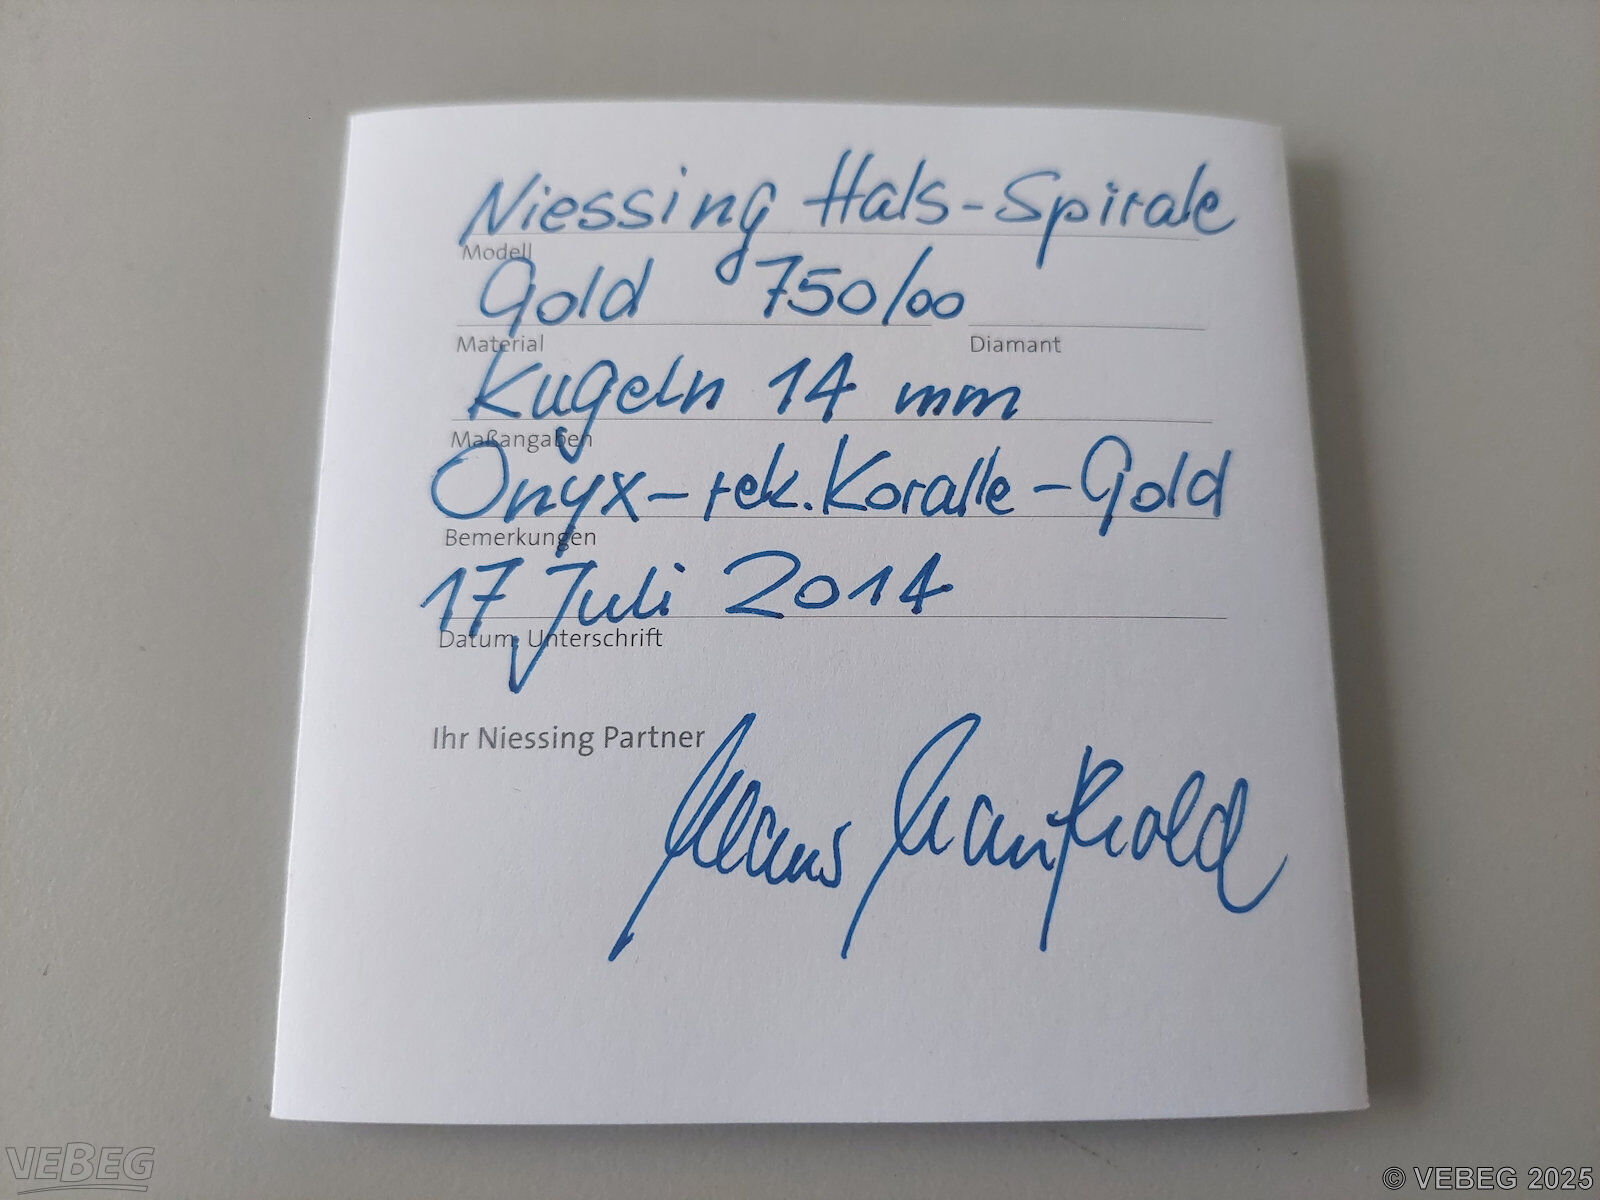 Niessing Hals-Spirale
Modell
Gold 750/00
Material Diamant
Kugeln 14 mm
Maßangaben
Onyx-rek. Koralle-Gold
Bemerkungen
17 Juli 2014
Datum, Unterschrift
Ihr Niessing Partner
VEBEG © VEBEG 2025